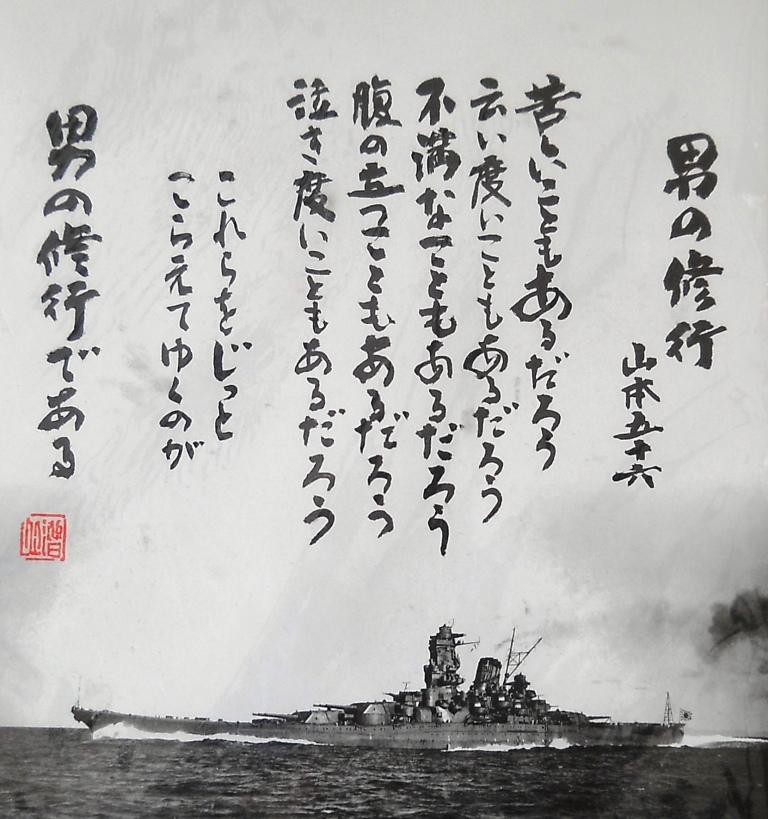 男の修行
山本五十六
苦しいこともあるだろう
云い度いこともあるだろう
不満なこともあるだろう
腹の立つこともあるだろう
泣き度いこともあるだろう
これらをじっと
こらえてゆくのが
男の修行である